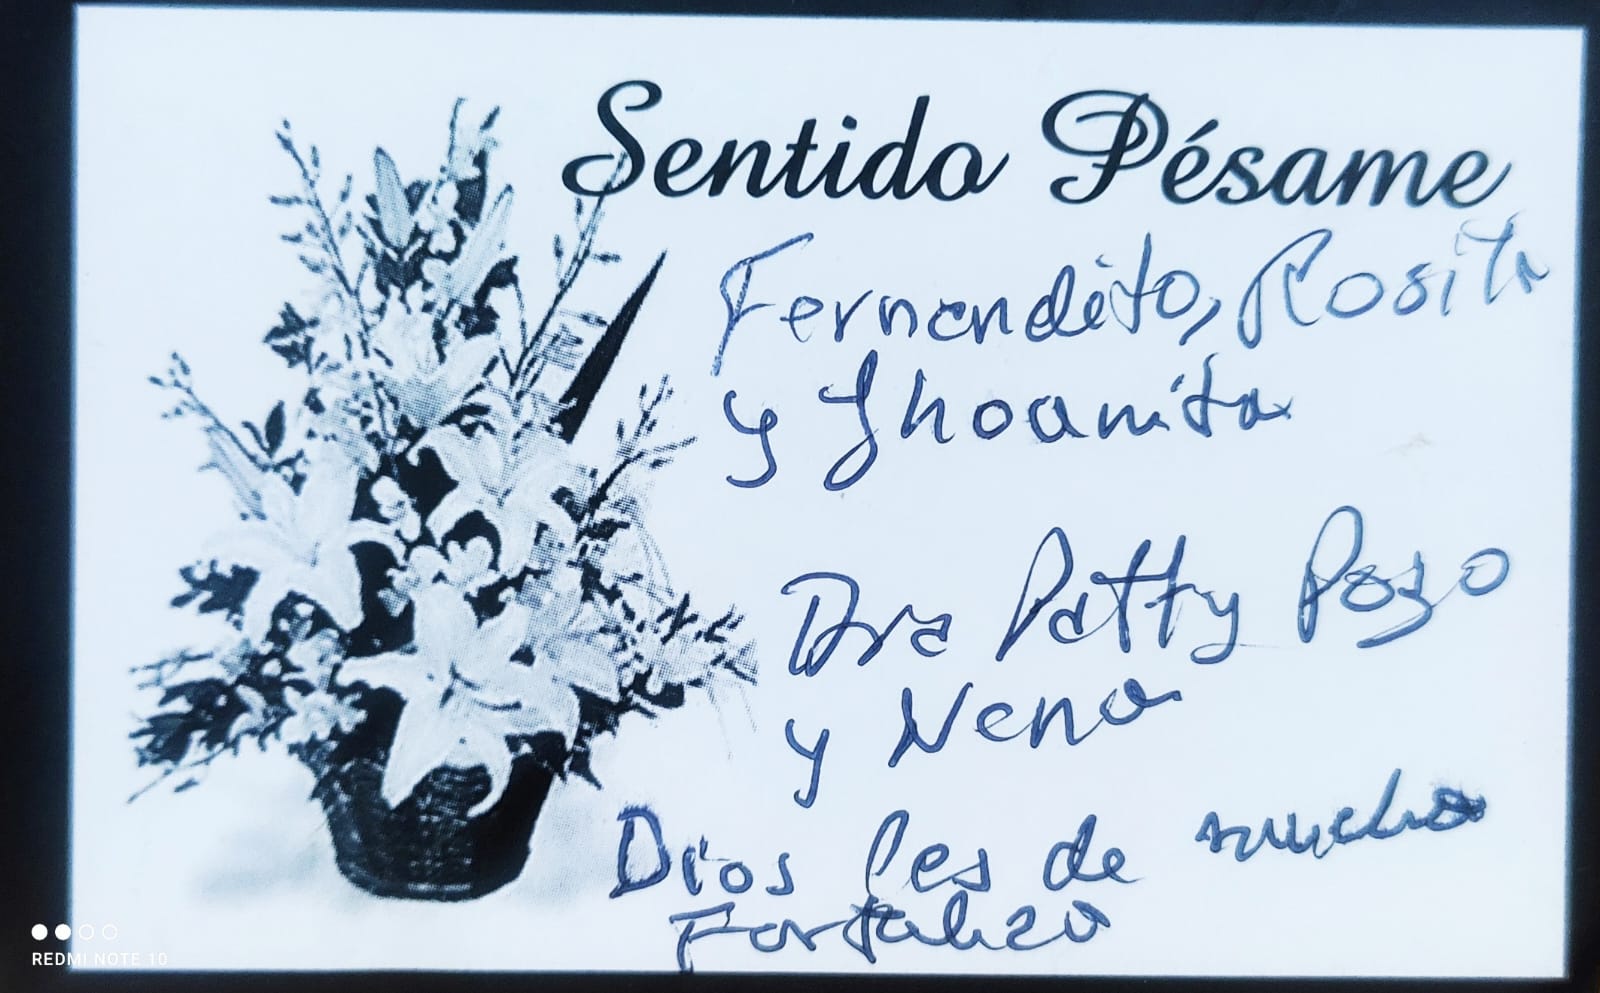 Sentido Pésame
Fernandito, Rosita
y Jhoanita
Dra Patty Pozo
y Nena
Dios les de mucha
Fortaleza
REDMI NOTE 10